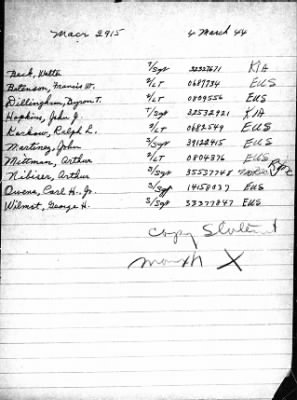 Macr 2915 4 March 44
Beck, Watts T/Sgt 32327671 KIA
Batenson, Francis W. 2/LT 0687734 EUS
Dillingham, Byron T. 2/LT 0809556 EUS
Hopkins, John J. T/Sgt 32532921 KIA
Korkow, Ralph L. 2/LT 0682549 EUS
Martinez, John S/Sgt 39122415 EUS
Mittman, Arthur 2/LT 0804376 EUS
Nibiser, Arthur S/Sgt 35537748
Owens, Carl H. Jr. S/Sgt 14158037 EUS
Wilmot, George H. S/Sgt 33377847 EUS
Copy
X